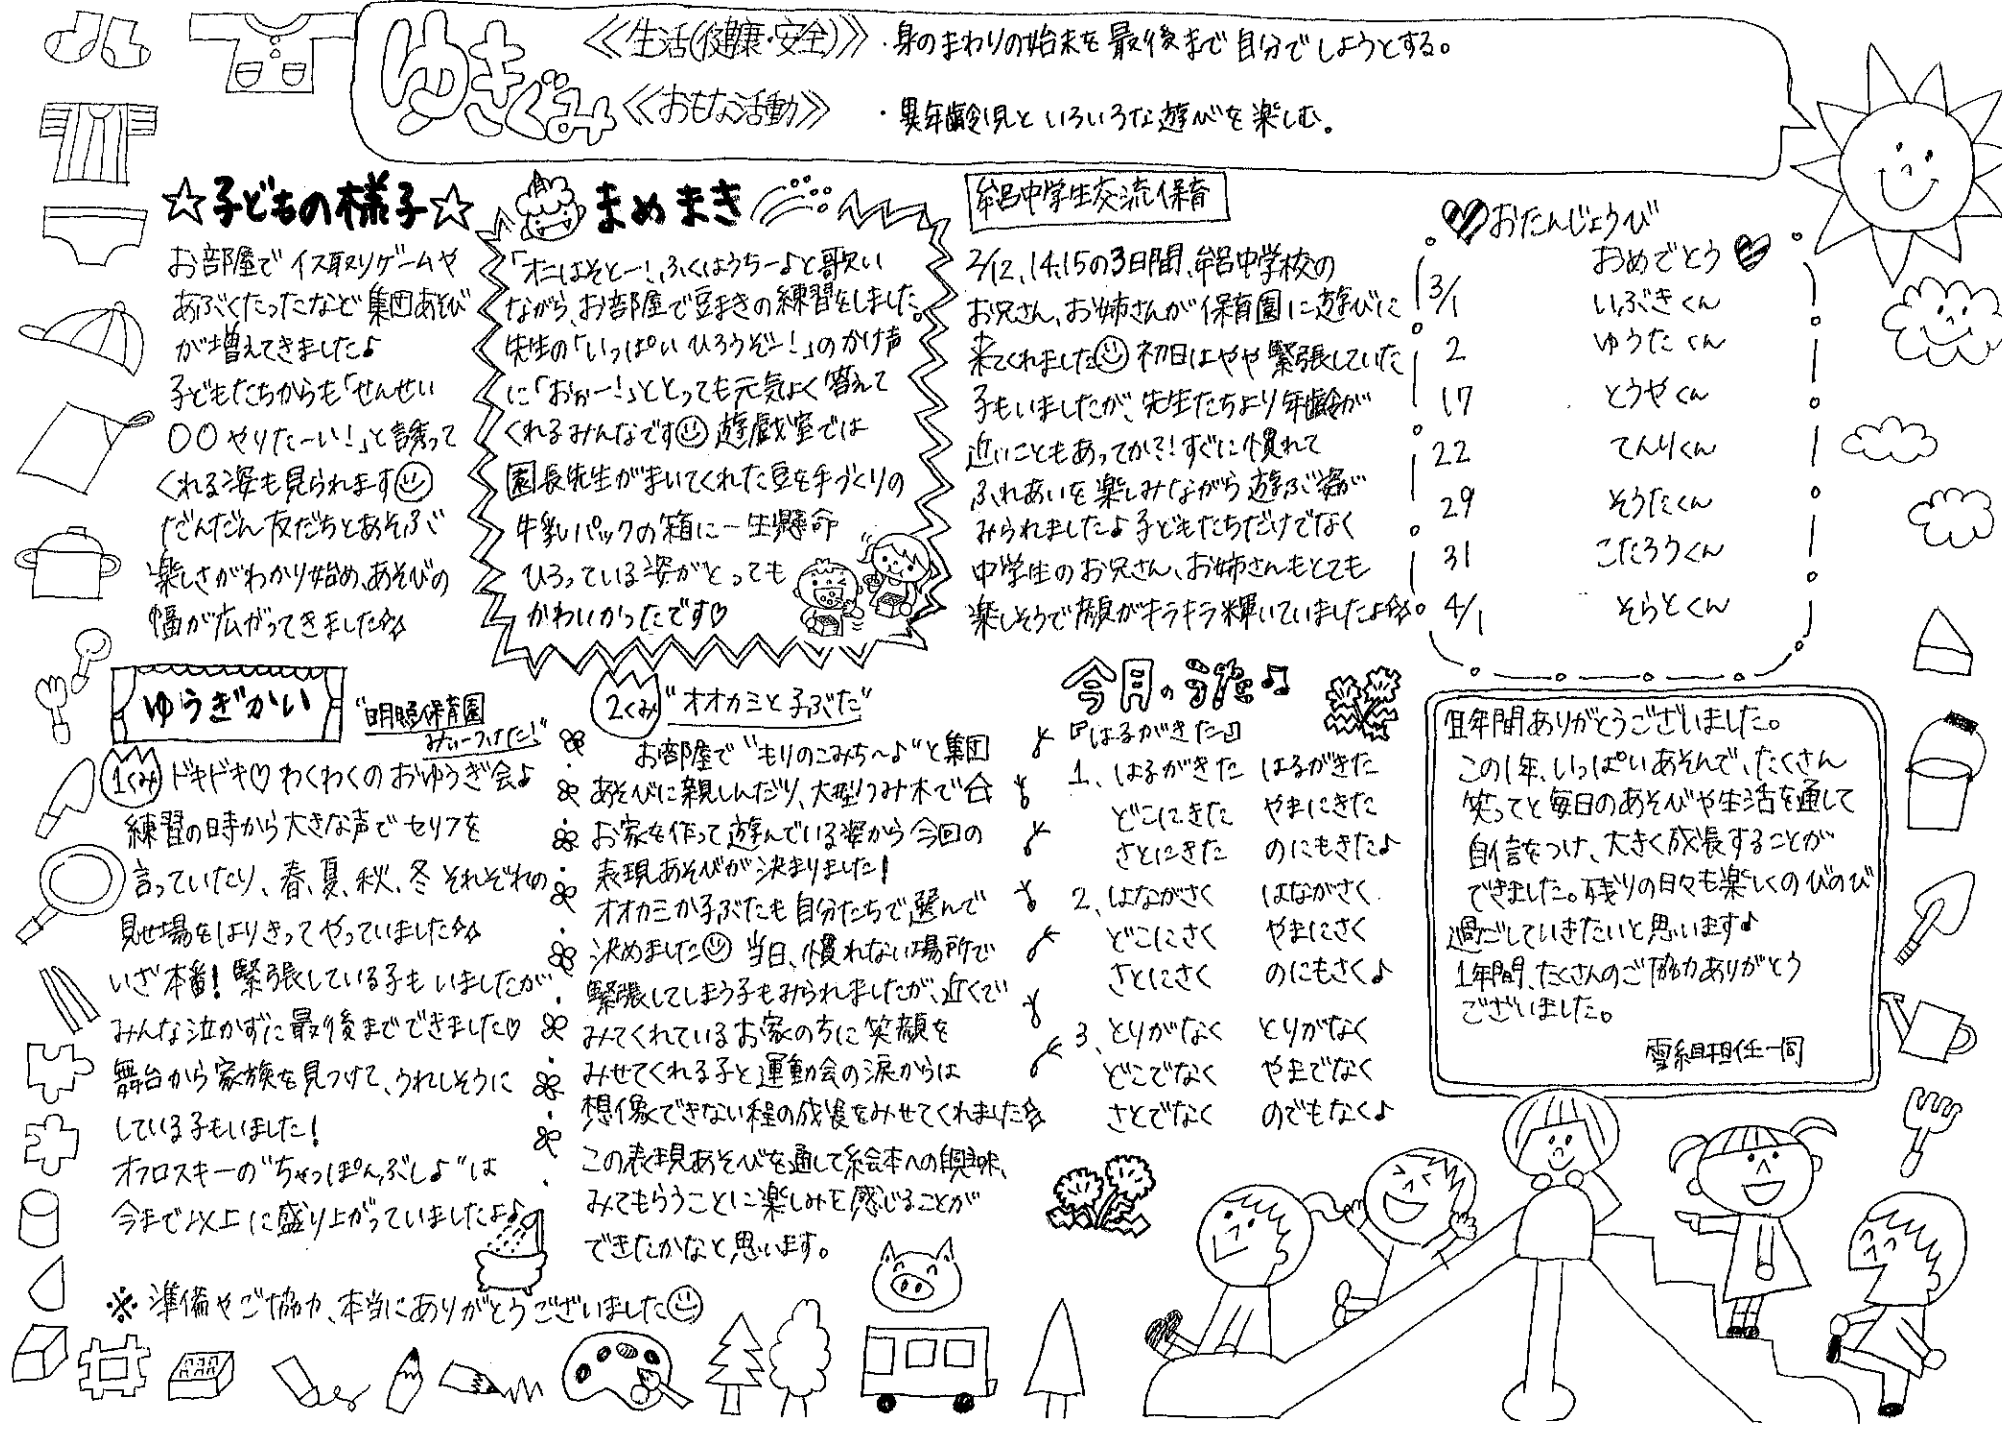 ゆきぐみ
≪生活(健康・安全)≫ ・身のまわりの始末を最後まで自分でしようとする。
≪おもな活動≫ ・異年齢児といろいろな遊びを楽しむ。
☆子どもの様子☆
お部屋でイス取りゲームや
あぶくたったなど集団あそび
が増えてきました♪
子どもたちからも「せんせい
〇〇やりたーい!」と誘って
くれる姿も見られます☺
だんだん友だちとあそぶ
楽しさがわかり始め、あそびの
幅が広がってきました☆☆
まめまき
「オニはそとー!ふくはうちー♪と歌い
ながら、お部屋で豆まきの練習をしました。
先生の「いっぱいひろうぞー!」のかけ声
に「おぉー!」ととっても元気よく答えて
くれるみんなです☺遊戯室では
園長先生がまいてくれた豆を手づくりの
牛乳パックの箱に一生懸命
ひろっている姿がとっても
かわいかったです♡
牟呂中学生交流保育
2/12、14、15の3日間、牟呂中学校の
お兄さん、お姉さんが保育園に遊びに
来てくれました☺初日はやや緊張していた
子もいましたが、先生たちより年齢が
近いこともあってか?!すぐに慣れて
ふれあいを楽しみながら遊ぶ姿が
みられましたよ♪子どもたちだけでなく
中学生のお兄さん、お姉さんもとても
楽しそうで顔がキラキラ輝いていましたよ☆☆
♡おたんじょうび
おめでとう♡
3/1 いぶきくん
2 ゆうたくん
17 とうやくん
22 てんりくん
29 そうたくん
31 こたろうくん
4/1 そらとくん
ゆうぎかい
"明照保育園
みぃーつけた!"
1くみ ドキドキ♡わくわくのおゆうぎ会♪
練習の時から大きな声でセリフを
言っていたり、春、夏、秋、冬それぞれの
見せ場をはりきってやっていました☆☆
いざ本番!緊張している子もいましたが
みんな泣かずに最後までできました♡
舞台から家族を見つけて、うれしそうに
している子もいました!
オフロスキーの"ちゃっぽんぶし♪"は
今まで以上に盛り上がっていましたよ♪
※準備やご協力、本当にありがとうございました☺
2くみ "オオカミと子ぶた"
お部屋で"もりのこみち〜♪"と集団
あそびに親しんだり、大型つみ木で
お家を作って遊んでいる姿から今回の
表現あそびが決まりました!
オオカミか子ぶたも自分たちで選んで
決めました☺当日、慣れない場所で
緊張してしまう子もみられましたが、近くで
みてくれているお家の方に笑顔を
みせてくれる子と運動会の涙からは
想像できない程の成長をみせてくれました☆
この表現あそびを通して絵本への興味、
みてもらうことに楽しみを感じることが
できたかなと思います。
今月のうた♫
『はるがきた』
1、はるがきた はるがきた
どこにきた やまにきた
さとにきた のにもきた♪
2、はながさく はながさく
どこにさく やまにさく
さとにさく のにもさく♪
3、とりがなく とりがなく
どこでなく やまでなく
さとでなく のでもなく♪
1年間ありがとうございました。
この1年、いっぱいあそんで、たくさん
笑ってと毎日のあそびや生活を通して
自信をつけ、大きく成長することが
できました。残りの日々も楽しくのびのび
過ごしていきたいと思います♪
1年間、たくさんのご協力ありがとう
ございました。
雪組担任一同